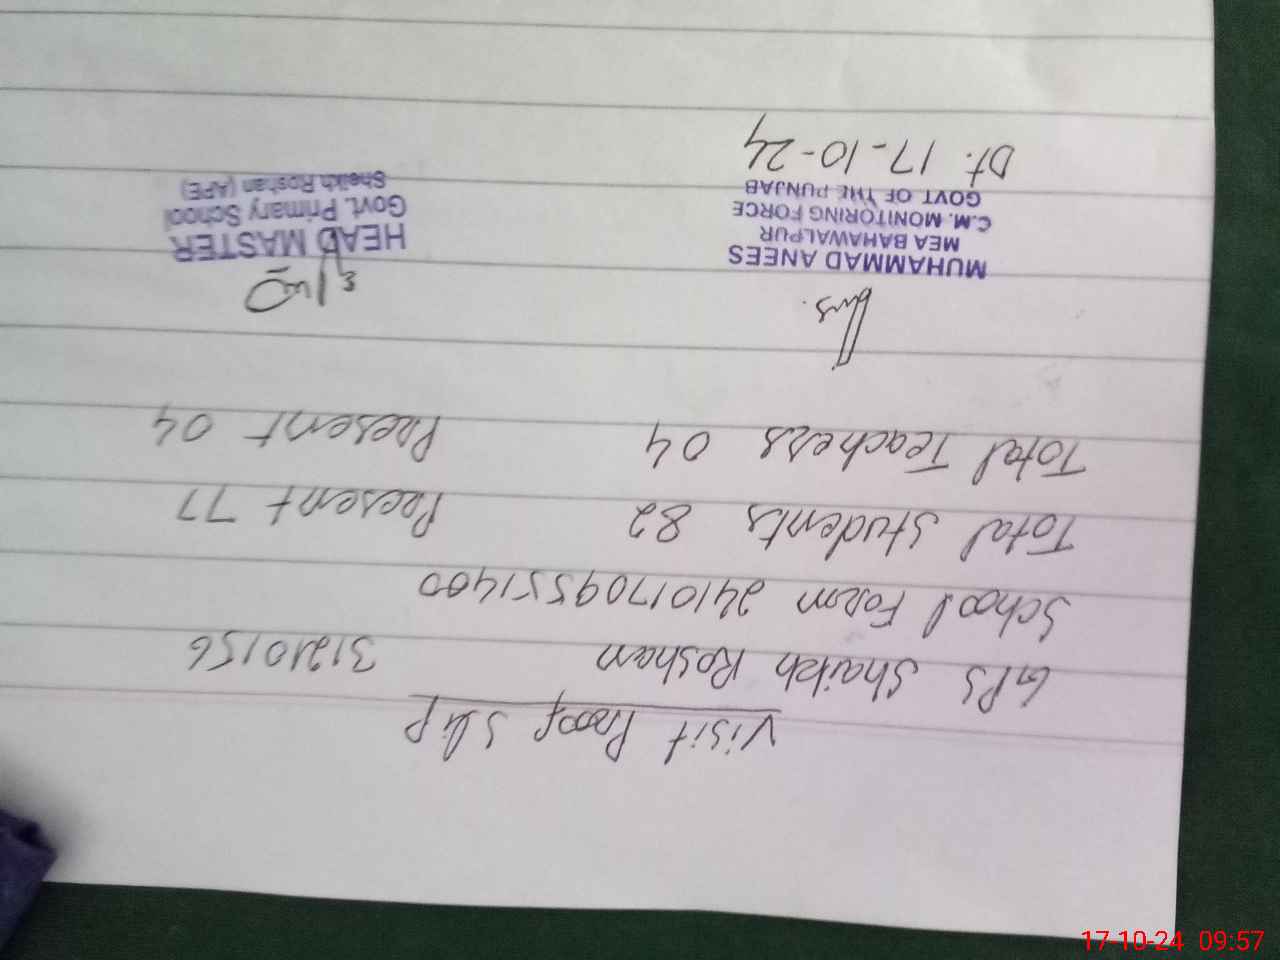 Visit Proof Slip
GPS Shaikh Roshan 31210156
School Form 24101709551400
Total Students 82 Present 77
Total Teachers 04 Present 04
MUHAMMAD ANEES
MEA BAHAWALPUR
C.M. MONITORING FORCE
GOVT OF THE PUNJAB
Dt. 17-10-24
HEAD MASTER
Govt. Primary School
Sheikh Roshan (APE)
17-10-24 09:57